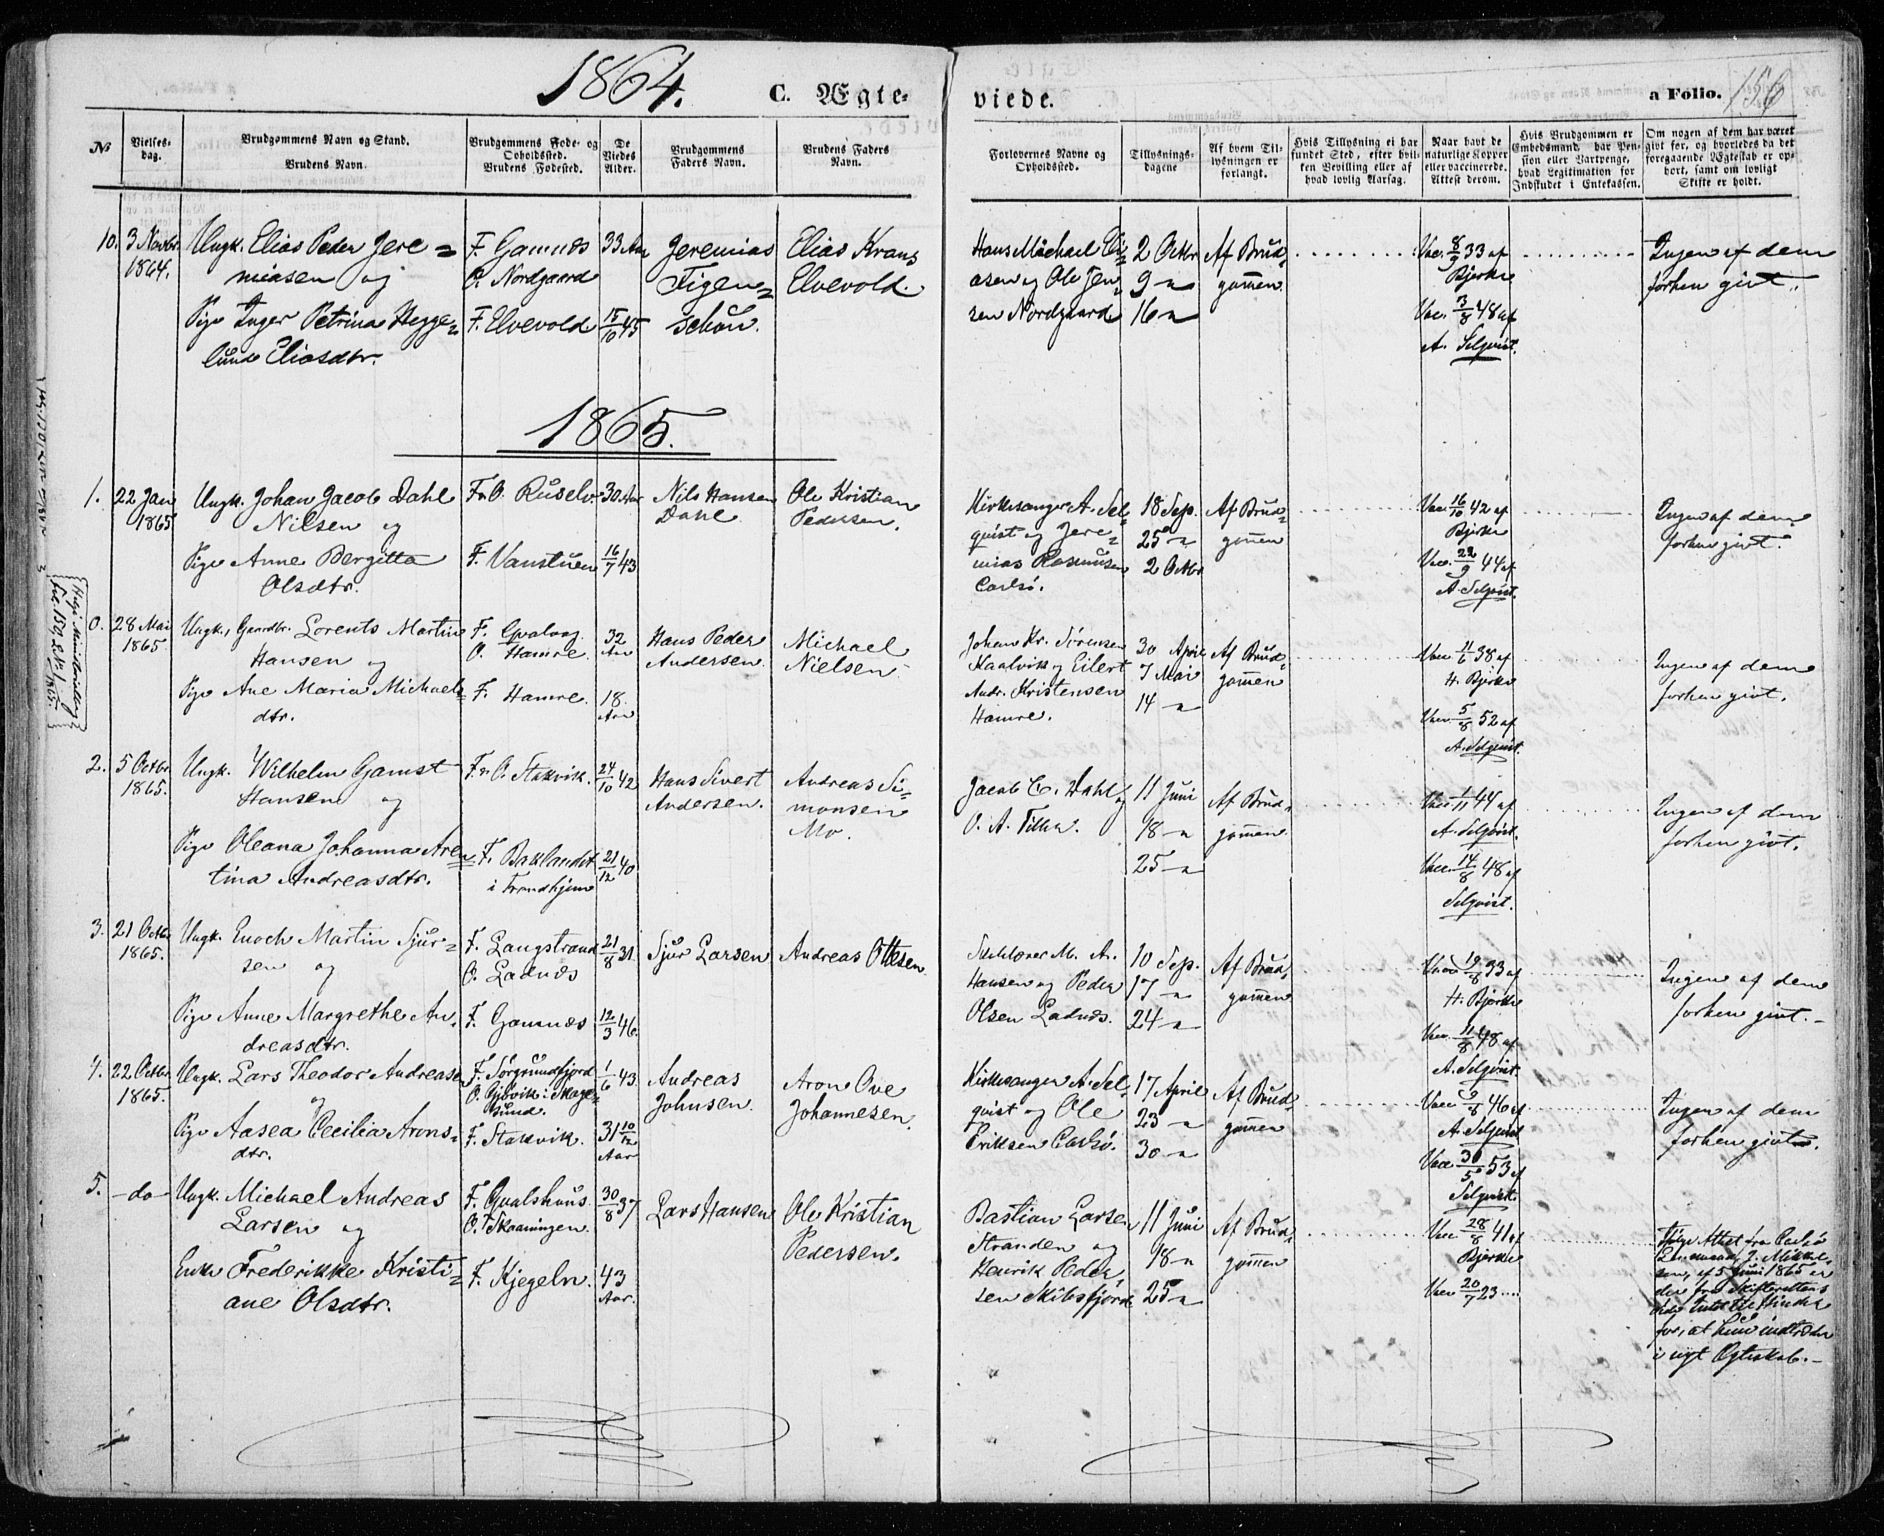 1864.
C. Ægteviede.
a Folio. 156
№
Vielsesdag.
Brudgommens Navn og Stand.
Brudens Navn.
Brudgommens Føde- og Opholdssted.
Brudens Fødested.
De Viedes Alder.
Brudgommens Faders Navn.
Brudens Faders Navn.
Forlovernes Navne og Opholdssted.
Tillysningsdagene
Af hvem Tillysningen er forlangt.
Hvis Tillysning ei har fundet Sted, efter hvilken Bevilling eller af hvad lovlig Aarsag.
Naar havt de naturlige Kopper eller vaccinerede. Attest derom.
Hvis Brudgommen er Embedsmand, har Pension eller Vartpenge, hvad Legitimation for Indskudet i Enkekassen.
Om nogen af dem har været givt for, og hvorledes da det foregaaende Ægteskab er ophørt, samt om lovligt Skifte er holdt.
10. 3 Novbr. 1864.
Ungk. Elias Peder Jere=
miasen og
Pige Inger Petrina Hegge=
lund Eliasdtr.
F. Gamnæs
O. Nordgaard
F. Elvevold
33 Aar
15/10 45
Jeremias
Figen=
schou.
Elias Kraus
Elvevold.
Hans Michael Eli=
asen og Ole Jen=
sen Nordgaard
2 Octbr
9 —
16 —
Af Brud=
gommen.
Vac. 8/9 33 af
Bjerke
Vac. 3/8 48 af
A. Selqvist.
Ingen af dem
forhen givt.
1865.
1. 22 Jan 1865
Ungk. Johan Jacob Dahl
Nilsen og
Pige Anne Bergitta
Olsdtr.
F. O. Ruselv.
F. Vanstuen
30 Aar
16/7 43
Nils Hansen
Dahl
Ole Kristian
Pedersen.
Kirkesanger A. Sel=
qvist og Jere=
mias Rasmusen
Carlsø.
18 Sep.
25 —
2 Octbr
Af Brud=
gommen
Vac. 16/10 42 af
Bjerke
Vac. 22/9 44 af
A. Selqvist.
Ingen af dem
forhen givt.
0. 28 Mai 1865.
Ungk., Gaardbr. Lorents Martin
Hansen og
Pige Ane Maria Michaels=
dtr.
F. Gvalvag
O. Hamre.
F. Hamre.
32 Aar
18. Aar
Hans Peder
Andersen.
Michael
Nielsen
Johan Kr. Sørensen
Kaalvik og Eilert
Andr. Kristensen
Hamre.
30 April
7 Mai
14 —
Af Brud=
gommen
Vac. 11/6 38 af
H. Bjerke
Vac. 5/8 52 af
A. Selqvist.
Ingen af dem
forhen givt.
2. 5 Octbr. 1865.
Ungk. Wilhelm Gamst
Hansen og
Pige Oleana Johanna Aren=
tina Andreasdtr.
F. O. Stakvik.
F. Baklandet
i Trondhjem
24/10 42
21/12 40
Hans Sivert
Andersen.
Andreas Si=
monsen
Mo.
Jacob C. Hahl og
O. A. Filke.
11 Juni
18 —
25 —
Af Brud=
gommen
Vac. 1/11 44 af
A. Selqvist.
Vac. 14/8 48 af
Selqvist.
Ingen af dem
forhen givt.
3. 21 Octbr. 1865.
Ungk. Enoch Martin Sjur=
sen og
Pige Anne Margrethe An=
dreasdtr.
F. Langstrand
O. Ladnæs
F. Gamnæs
21/8 31
12/3 46
Sjur Larsen
Andreas Ottesen
Skolelærer M. A.
Hansen og Peder
Olsen Ladnæs.
10 Sep.
17 —
24 —
Af Brud=
gommen
Vac. 19/8 33 af
H. Bjerke
Vac. 11/8 48 af
A. Selqvist.
Ingen af dem
forhen givt.—
4. 22 Octbr. 1865.
Ungk. Lars Theodor Andreasen
og
Pige Aasea Cecilia Arons=
dtr.
F. Sørgrundfjord
O. Gjøvik i Skage=
sund.
F. Stakvik.
1/6 43
31 10/12 Aar
Andreas
Johnsen.
Aron Ove
Johannesen.
Kirkesanger A. Sel=
qvist og Ole
Eriksen Carlsø.
17 April
23 —
30 —
Af Brud=
gommen
Vac. 9/8 46 af
A. Selqvist
Vac. 30/5 53 af
Selqvist
Ingen af dem
forhen givt.
5. —do—
Ungk. Michael Andreas
Larsen og
Enke Frederikke Kristi=
ane Olsdtr.
F. Qvalshaus.
O. Skaaningen.
F. Kjegeln.
30/8 37
43 Aar.
Lars Hansen
Ole Kristian
Pedersen.
Bastian Larsen
Stranden og
Henrik Peder=
sen Skibsfjord
11 Juni
18 —
25 —
Af Brud=
gommen
Vac. 28/8 41 af
Bjerke
Vac. 20/7 23 ....
Ifølge Attest fra Carlsø
Lensmand J. Mikkel=
sen, af 5 Juni 1865 er
der fra Skifterettens
Side Intet til Hinder
for, at hun indtræder
i nyt Ægteskab.—